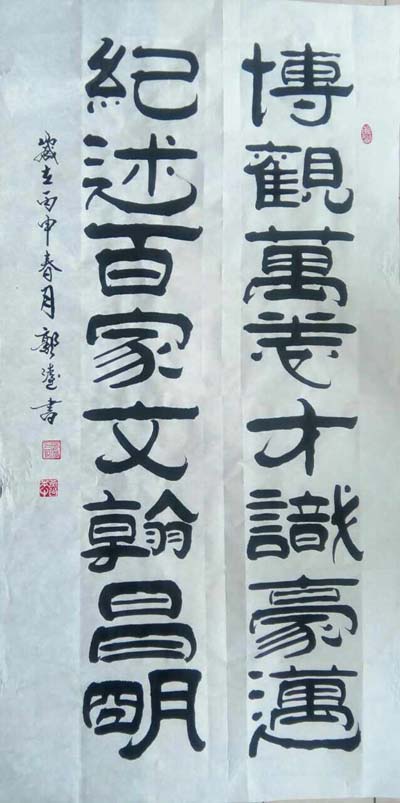 博觀萬卷才識豪邁
紀述百家文翰昌明
歲在丙申春月郭書